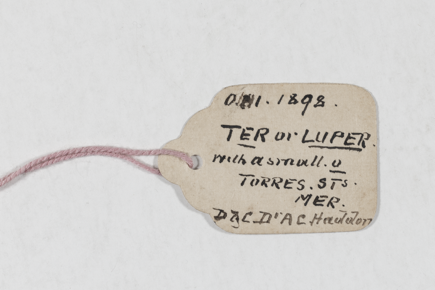 1898.
TER or LUPER.
with a small. u
TORRES. STs.
MER.
D & C. Dr A C Haddon